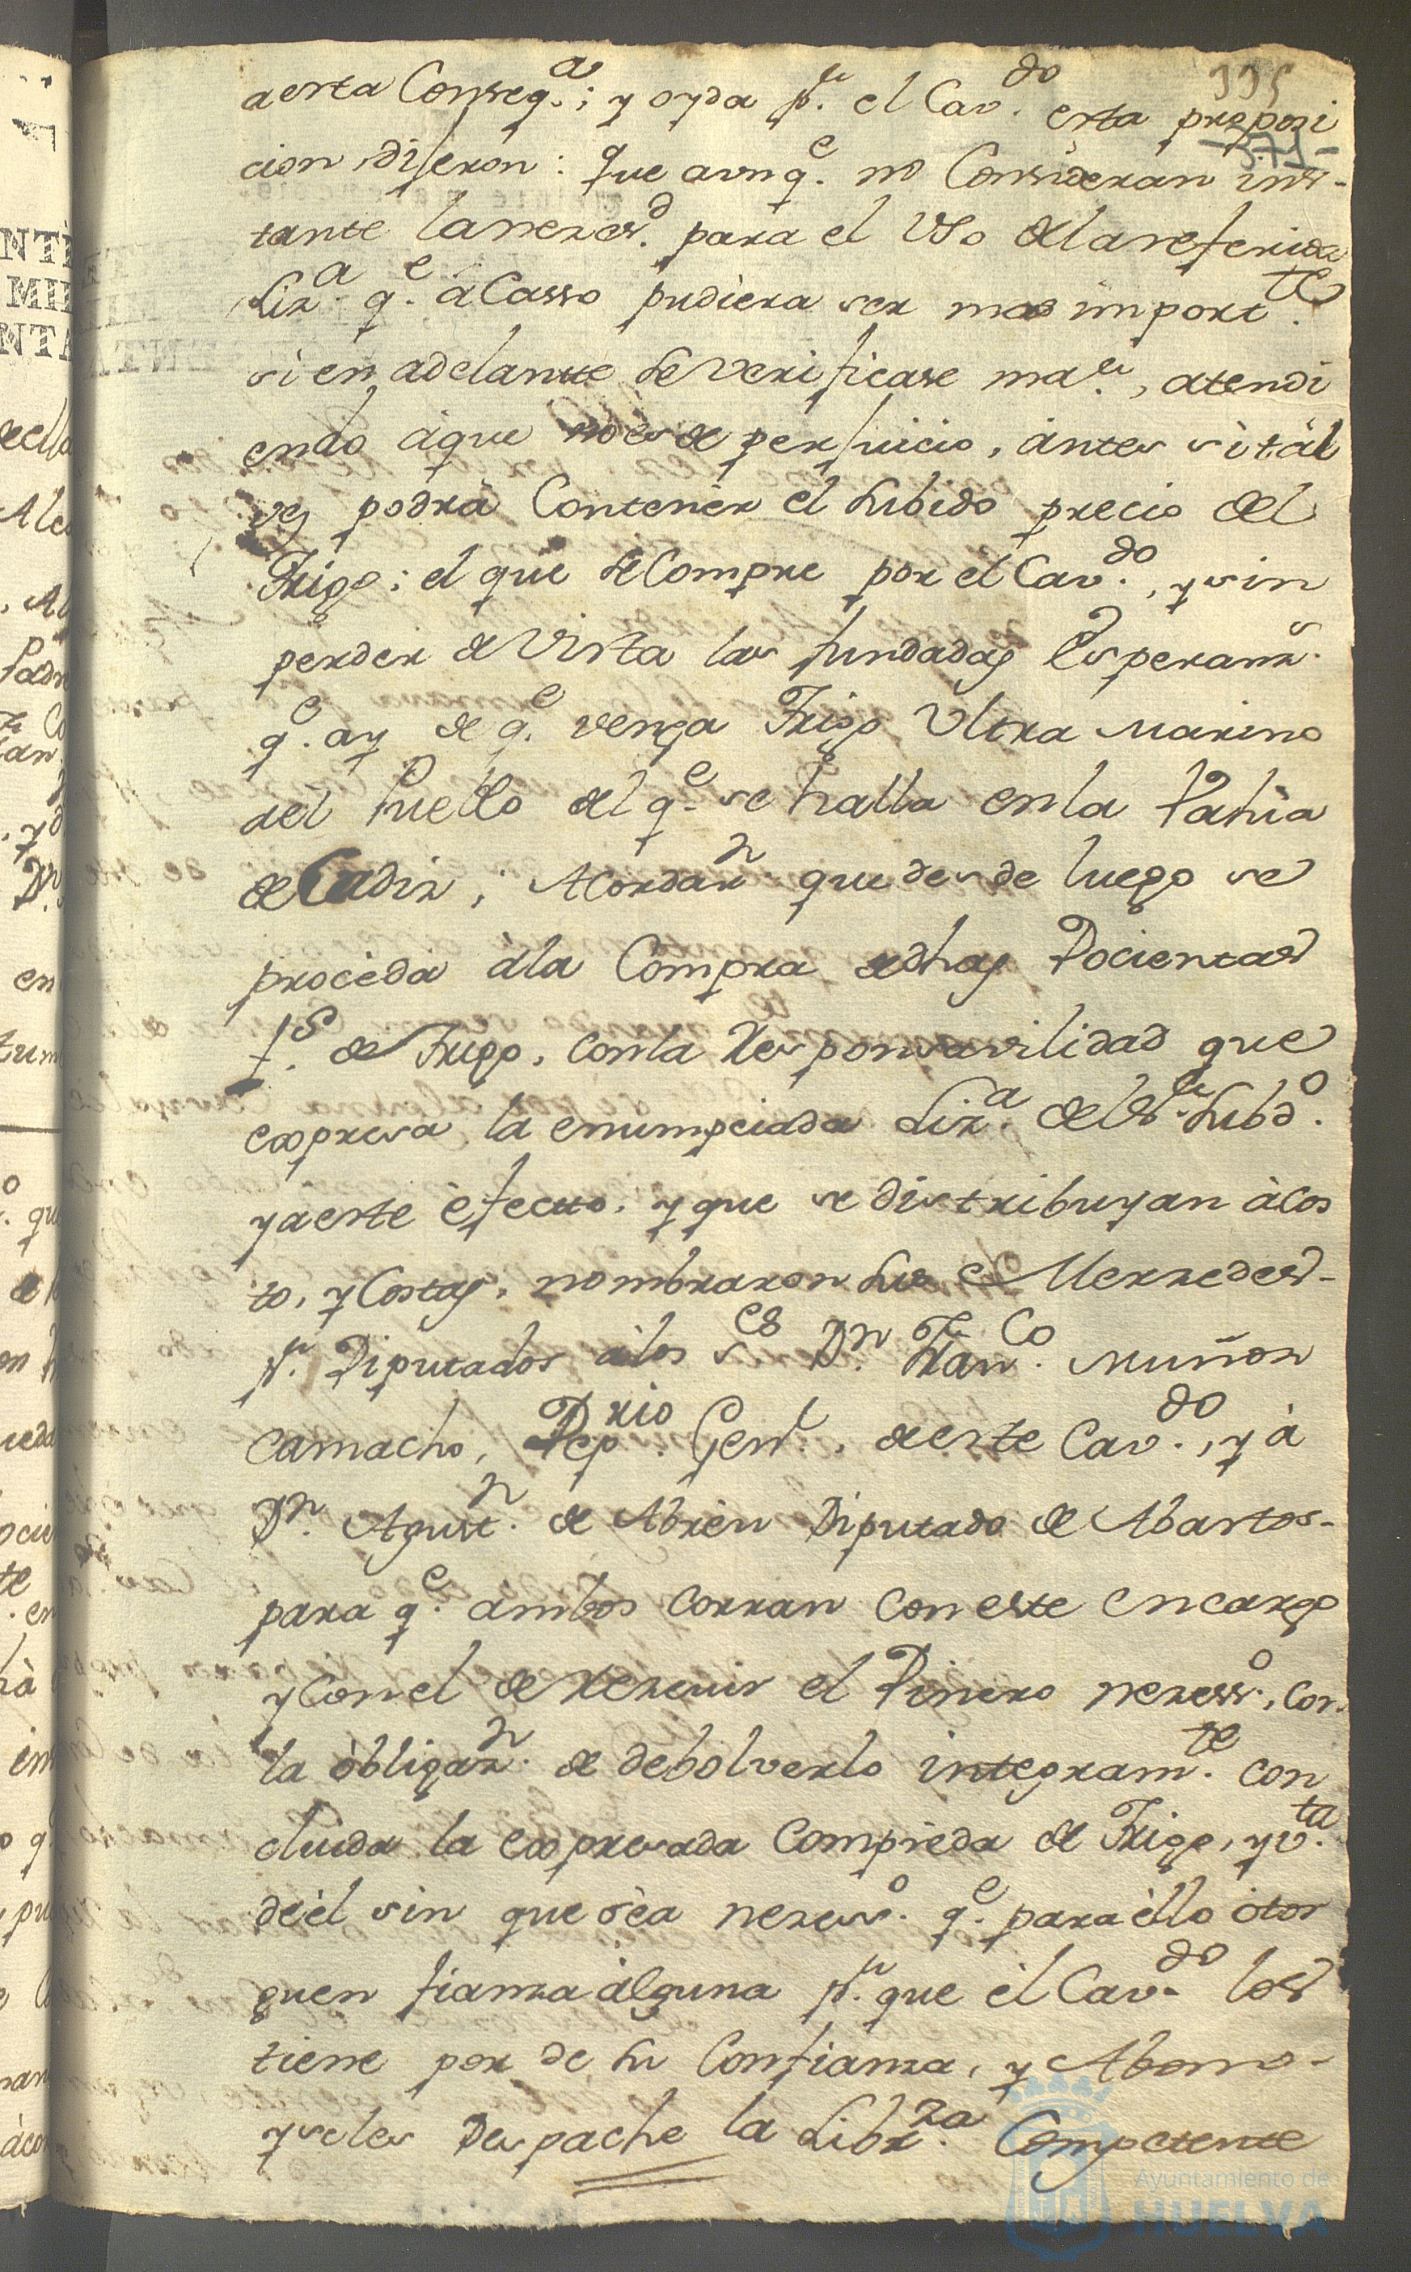 335
aesta Conseq.ª; y oyda p.r el Cav.do esta proposi
371-
cion dijeron: que aunq.e no Consideran ins-
tante la neces.d para el Vso de la referida
Liz.a q.e acasso pudiera ser mas import.te
si en adelante se verificase ma.r, atendi
endo àque no es de perjuicio, àntes si tàl
vez podrà Contenèr el subido precio del
Trigo; el que se Compre por el Cav.do, y sin
perder de Vista las fundadas Esperanz.s
q.e ay de q.e venga Trigo Ultra marino
del Puerto del q.e se halla en la Bahia
de Cadiz; Acordar.n que desde luego se
proceda àla Compra de dhas Docientas
f.s de Trigo, con la Responsavilidad que
expresa la enumpciada Liz.a del S.r Subd.o
y a este èfectto, y que se distribuyan àcos
to, y Costas, nombraron sus Merzedes-
p.r Diputados àlos S.es D.n Fran.co Muñoz
Camacho, Dep.rio Gen.l, de este Cav.do, y à
D.n Agust.n de Abrèu Diputado de Abastos-
para q.e àmbos corran con este encargo
y con el de Rezevir el Dinero nezess.o, con
la òbligaz.n de debolverlo integram.te con
cluida la expresada Compreda de Trigo, y v.ta
deèl sin que sèa nezess.o q.e para èllo òtor
guen fianza àlguna p.r que èl Cav.do los
tiene por de su Confianza, y Abono-
y seles Despache la Libr.za Competente
Ayuntamiento de
HUELVA